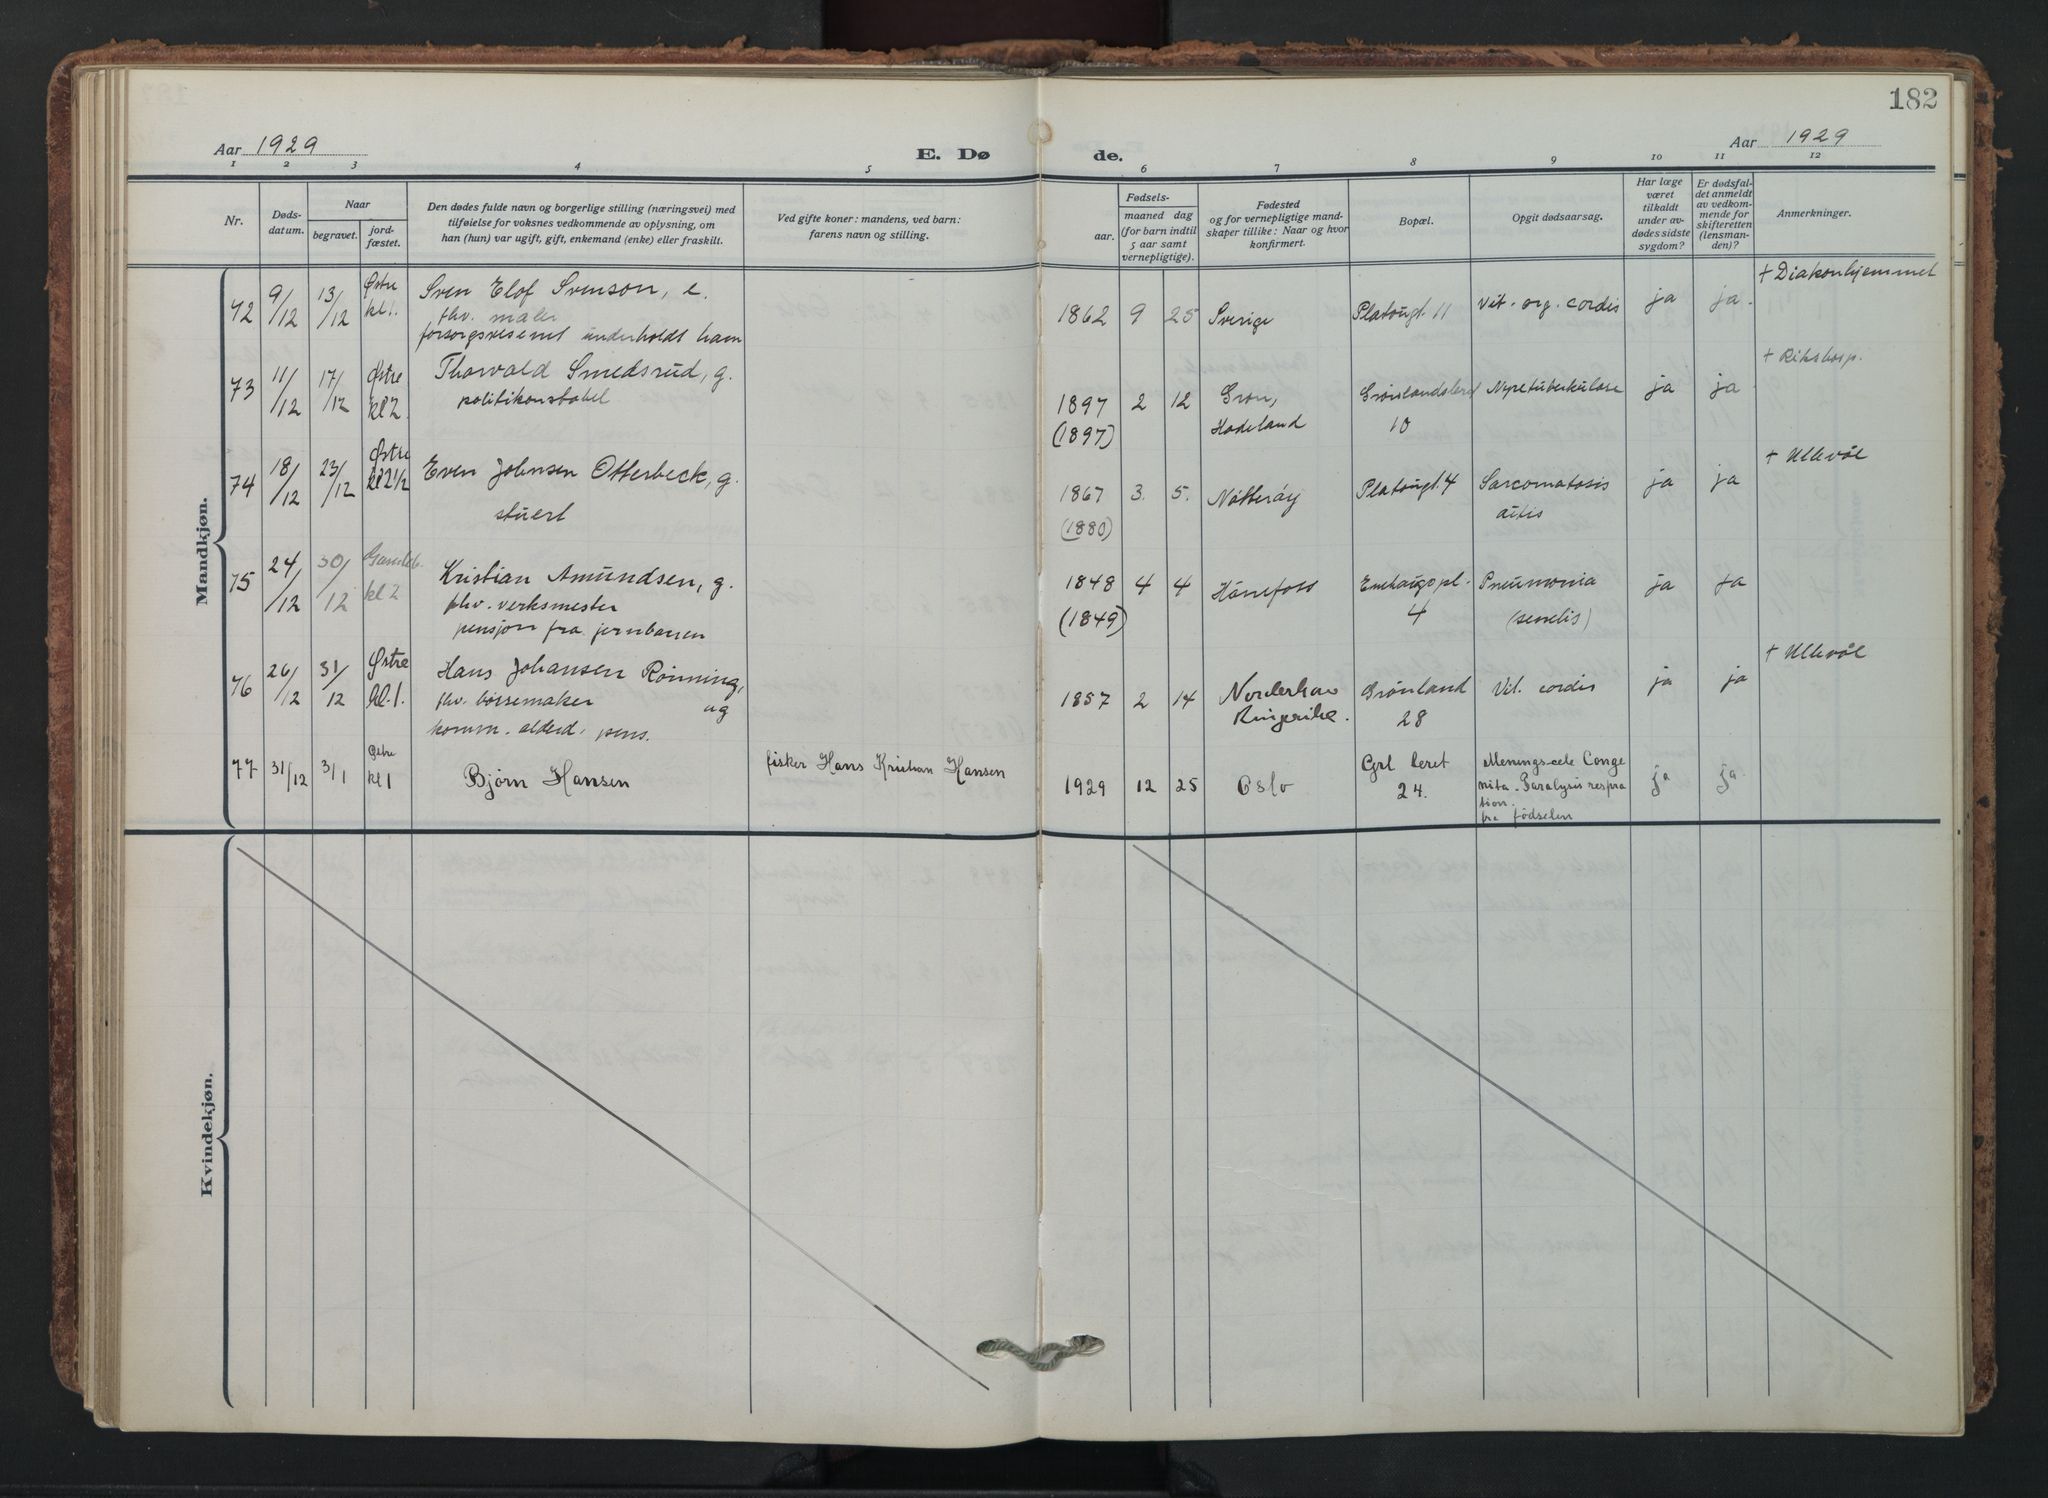 182
Aar 1929
E. Dø
de.
Aar 1929
1 2 3 4 5 6 7 8 9 10 11 12
Nr.
Døds-
datum.
Naar
begravet.
jord-
fæstet.
Den dødes fulde navn og borgerlige stilling (næringsvei) med
tilføielse for voksnes vedkommende av oplysning, om
han (hun) var ugift, gift, enkemand (enke) eller fraskilt.
Ved gifte koner: mandens, ved barn:
farens navn og stilling.
Fødsels-
aar.
maaned dag
(for barn indtil
5 aar samt
vernepligtige).
Fødested
og for vernepligtige mand-
skaper tillike: Naar og hvor
konfirmert.
Bopæl.
Opgit dødsaarsag.
Har læge
været
tilkaldt
under av-
dødes sidste
sygdom?
Er dødsfal-
det anmeldt
av vedkom-
mende for
skifteretten
(lensman-
den)?
Anmerkninger.
Mandkjøn.
72 9/12 13/12 Østre kl 1. Sven Elof Svenson, e. 1862 9 25 Sverige Platougt. 11 Vit. org. cordis ja ja. + Diakonhjemmet
fhv. maler
forsorgsvesenet underholdt ham
73 11/12 17/12 Østre kl 2 Thorvald Smedsrud, g. 1897 2 12 Gran, Grønlandsleret Nyretuberkulose ja ja + Rikshosp.
politikonstabel (1897) Hadeland 10
74 18/12 23/12 Østre kl 2 1/2 Even Johnsen Otterbeck, g. 1867 3. 5. Nøtterøy Platougt. 4 Sarcomatosis ja ja + Ullevål
stuert (1880)
75 24/12 30/12 Gamleb. kl 2 Kristian Amundsen, g. 1848 4 4 Hønefoss Enehaugpl. Pneumonia ja ja
fhv. verksmester (1849) 4 (senilis)
pensjon fra jernbanen
76 26/12 31/12 Østre kl. 1. Hans Johansen Rønning, 1857 2 14 Norderhov Grønland Vit. cordis ja ja + Ullevål
fhv. børsemaker ug Ringerike. 28
komm. alderd. pens.
77 31/12 3/1 Østre kl 1 Bjørn Hansen fisker Hans Kristian Hansen 1929 12 25 Oslo Grl leret Menings-cele Conge
24. nita. Paralysis respira
tion.
fra fødselen
ja ja
Kvindekjøn.